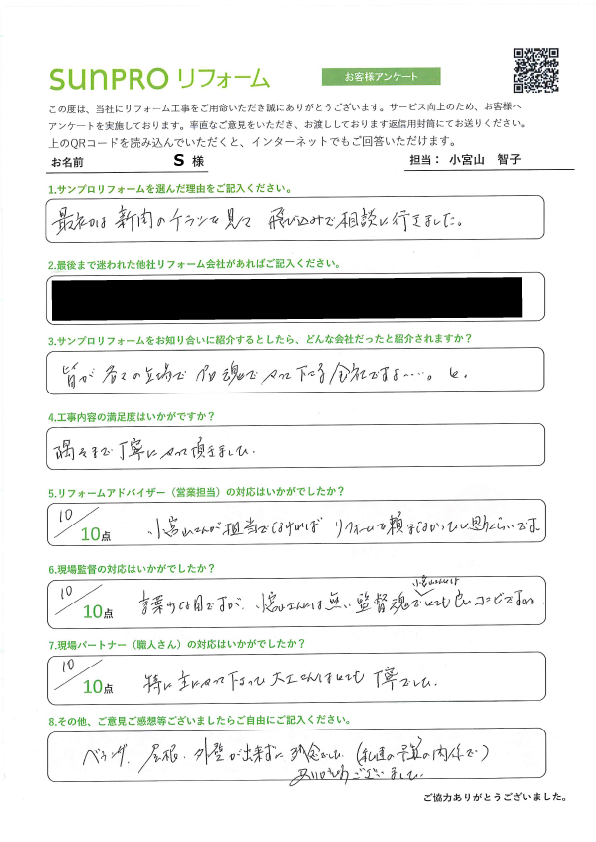 sunpro リフォーム
お客様アンケート
この度は、当社にリフォーム工事をご用命いただき誠にありがとうございます。サービス向上のため、お客様へ
アンケートを実施しております。率直なご意見をいただき、お渡ししております返信用封筒にてお送りください。
上のQRコードを読み込んでいただくと、インターネットでもご回答いただけます。
お名前 S 様 担当： 小宮山 智子
1.サンプロリフォームを選んだ理由をご記入ください。
最初は新聞のチラシを見て 飛び込みで相談に行きました。
2.最後まで迷われた他社リフォーム会社があればご記入ください。
3.サンプロリフォームをお知り合いに紹介するとしたら、どんな会社だったと紹介されますか？
皆が各々の立場で 魂でやって下さる会社ですよ……。と。
4.工事内容の満足度はいかがですか？
隅々まで丁寧にやって頂きました。
5.リフォームアドバイザー（営業担当）の対応はいかがでしたか？
10／10点 小宮山さんが担当でなければ リフォームを頼まなかったと思うくらいです
6.現場監督の対応はいかがでしたか？
小宮山さんとは
10／10点 小宮山さんには無い監督魂でとても良いコンビですね
7.現場パートナー（職人さん）の対応はいかがでしたか？
10／10点 特に主にやって下さった大工さんはとても丁寧でした。
8.その他、ご意見ご感想等ございましたらご自由にご記入ください。
ベランダ、屋根、外壁が出来ずに残念でした（私達の予算の関係で）
ありがとうございました。
ご協力ありがとうございました。